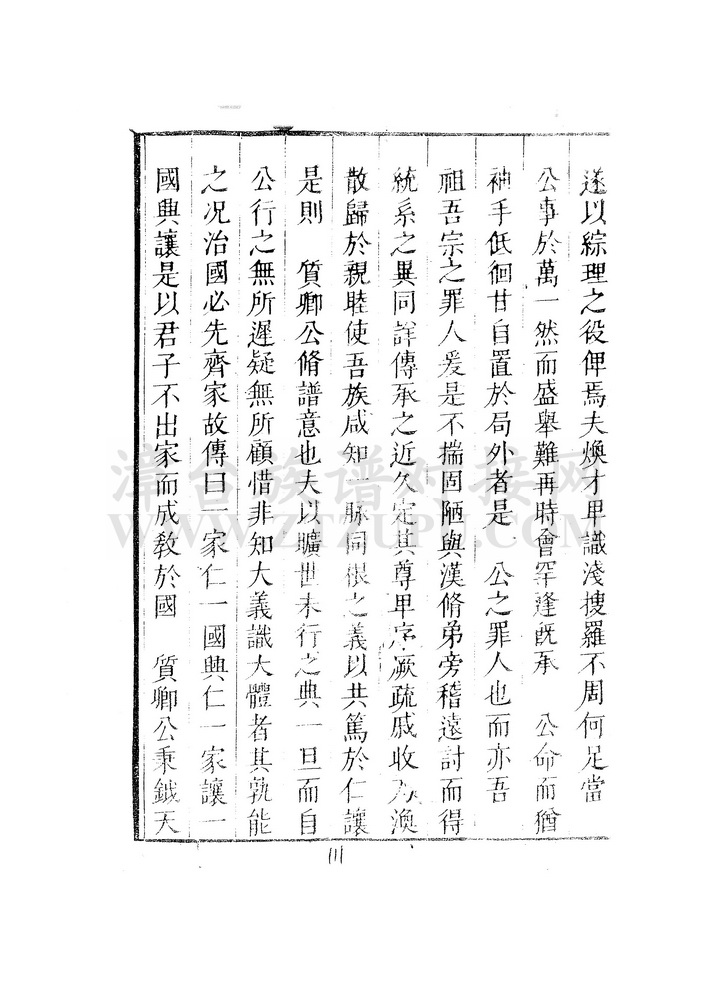 遂以綜理之役俾焉夫煥才卑識淺搜羅不周何足當
公事於萬一然而盛舉難再時會罕逢旣承　公命而猶
袖手低徊甘自置於局外者是　公之罪人也而亦吾
祖吾宗之罪人爰是不揣固陋與漢脩弟旁稽遠討而得
統系之異同詳傳承之近久定其尊卑序厥疏戚收為渙
散歸於親睦使吾族咸知一脉同根之義以共篤於仁讓
是則　質卿公脩譜意也夫以曠世未行之典一旦而自
公行之無所遲疑無所顧惜非知大義識大體者其孰能
之况治國必先齊家故傳曰一家仁一國興仁一家讓一
國興讓是以君子不出家而成教於國　質卿公秉鉞天
三
漳台族谱对接网
WWW.ZTZUPU.COM